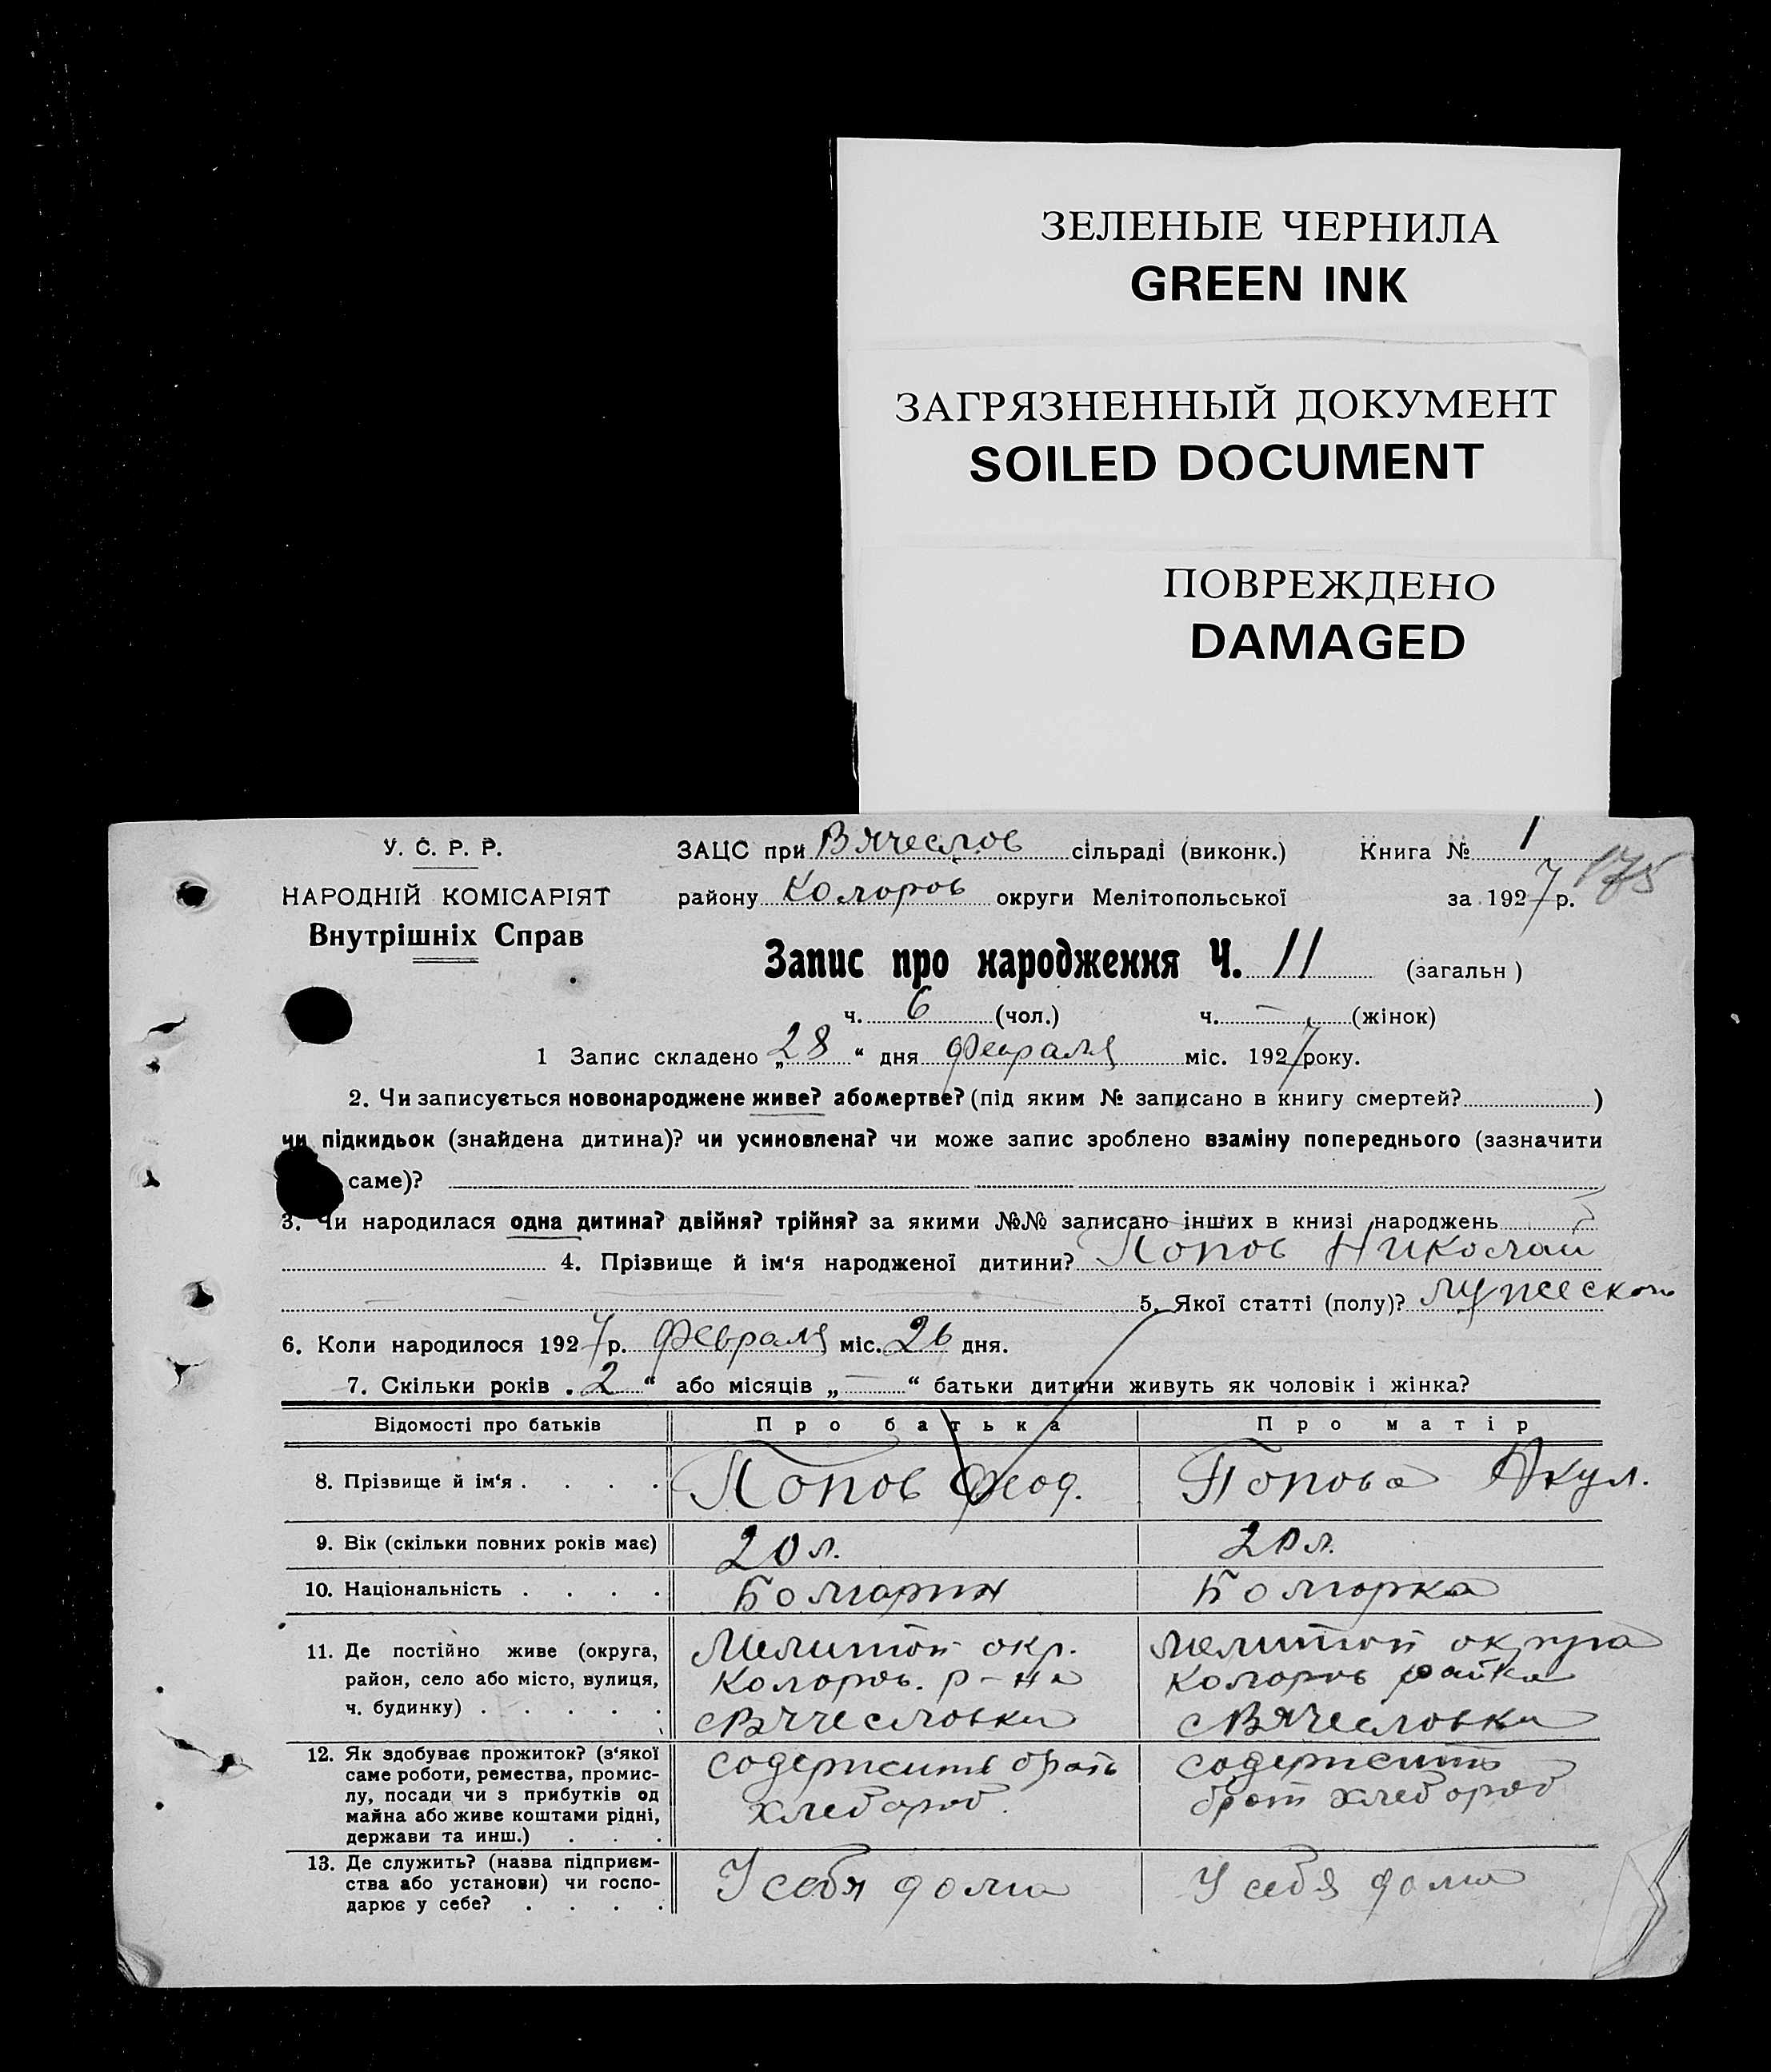 ЗЕЛЕНЫЕ ЧЕРНИЛА
GREEN INK
ЗАГРЯЗНЕННЫЙ ДОКУМЕНТ
SOILED DOCUMENT
ПОВРЕЖДЕНО
DAMAGED
У. С. Р. Р.
НАРОДНІЙ КОМІСАРІЯТ
Внутрішніх Справ
ЗАЦС при Вячеслов сільраді (виконк.) Книга № 1
175
району Коларов округи Мелітопольської за 1927 р.
Запис про народження Ч. 11 (загальн)
ч. 6 (чол.) ч. — (жінок)
1 Запис складено „28“ дня февраля міс. 1927 року.
2. Чи записується новонароджене живе? або мертве? (під яким № записано в книгу смертей? )
чи підкидьок (знайдена дитина)? чи усиновлена? чи може запис зроблено взаміну попереднього (зазначити
саме)?
3. Чи народилася одна дитина? двійня? трійня? за якими №№ записано інших в книзі народжень
4. Прізвище й ім‘я народженої дитини? Попов Николай
5. Якої статті (полу)? мужеского
6. Коли народилося 1927 р. февраля міс. 26 дня.
7. Скільки років „2“ або місяців „—“ батьки дитини живуть як чоловік і жінка?
Відомості про батьків Про батька Про матір
8. Прізвище й ім‘я . . . . Попов Феод. Попова Акул.
9. Вік (скільки повних років має) 20 л. 20 л.
10. Національність . . . . Болгарин Болгарка
11. Де постійно живе (округа, Мелитоп окр. Мелитоп округа
район, село або місто, вулиця, Коларов. р-на Коларов района
ч. будинку) . . . . . с Вячесловки с Вячесловки
12. Як здобуває прожиток? (з‘якої содержит брать содержить
саме роботи, ремества, промис-
лу, посади чи з прибутків од хлебороб. брат хлебороб
майна або живе коштами рідні,
держави та инш.) . . .
13. Де служить? (назва підприєм-
ства або установи) чи госпо- У себя дома У себя дома
дарює у себе? . . . .